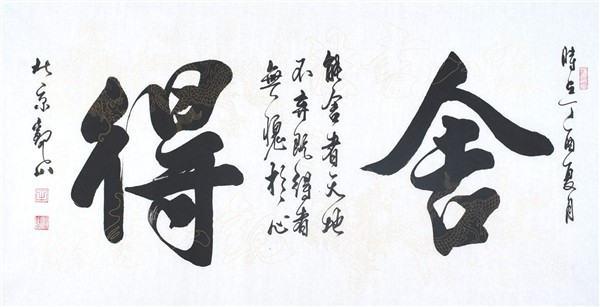 時在丁酉夏月
舍
能舍者天地
不弃既得者
無愧於心
得
北京